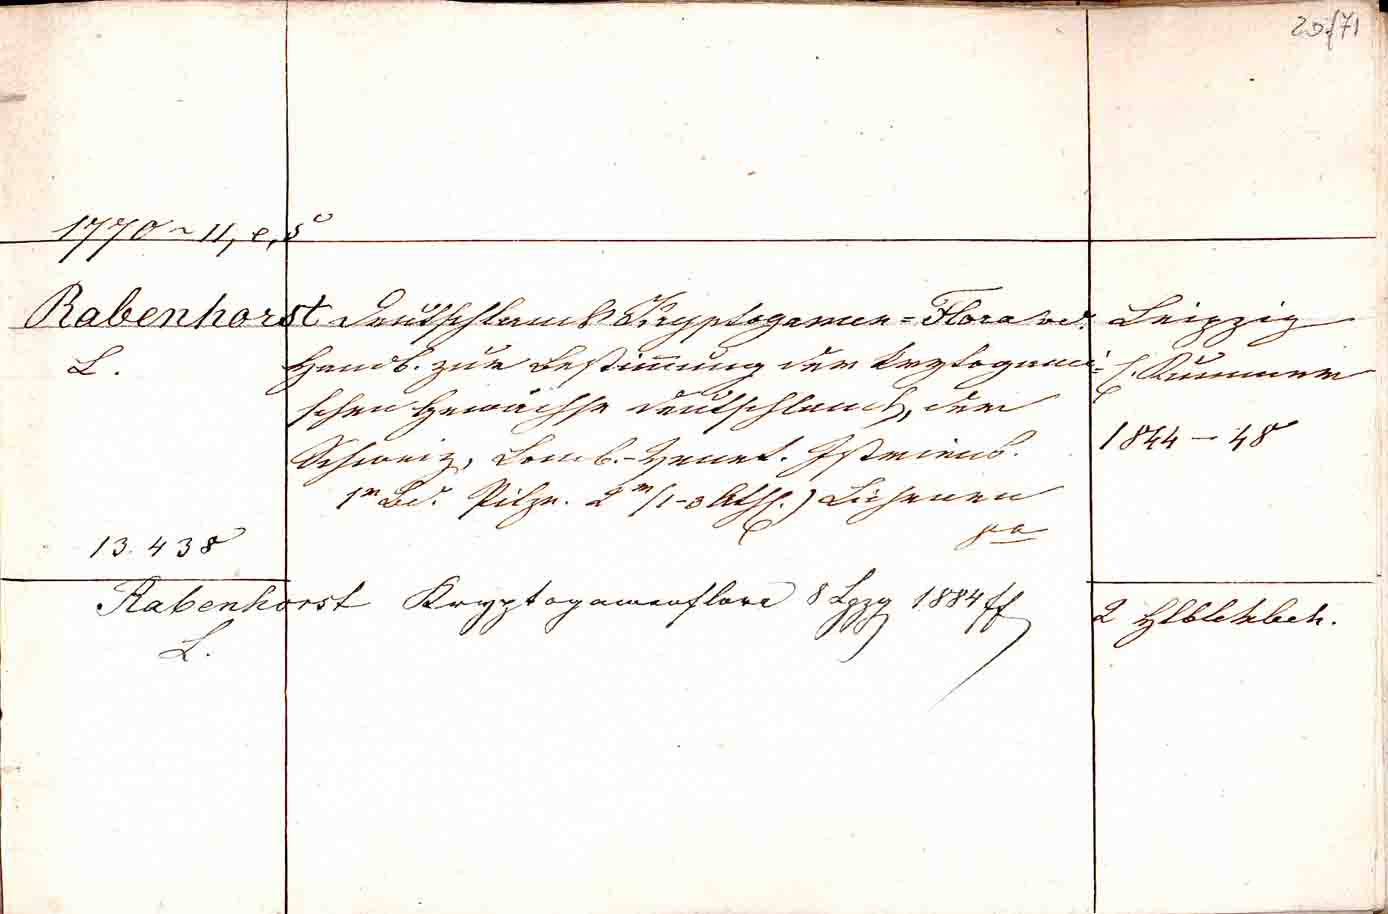 20/71
1770~11, e, 8°
Rabenhorst Deutschlands Kryptogamen=Flora od. Leipzig
L. Handb. zur Bestimmung der kryptogami= E. Kummer
schen Gewächse Deutschlands, der
Schweiz, Lomb.-Venet. Istriens. 1844–48
1r Bd. Pilze. 2r (1-3 Abth.) Lichenen
13.438
Rabenhorst Kryptogamenflora 8 Lpzg 1884 ff 2 Hlbleinbde.
L.